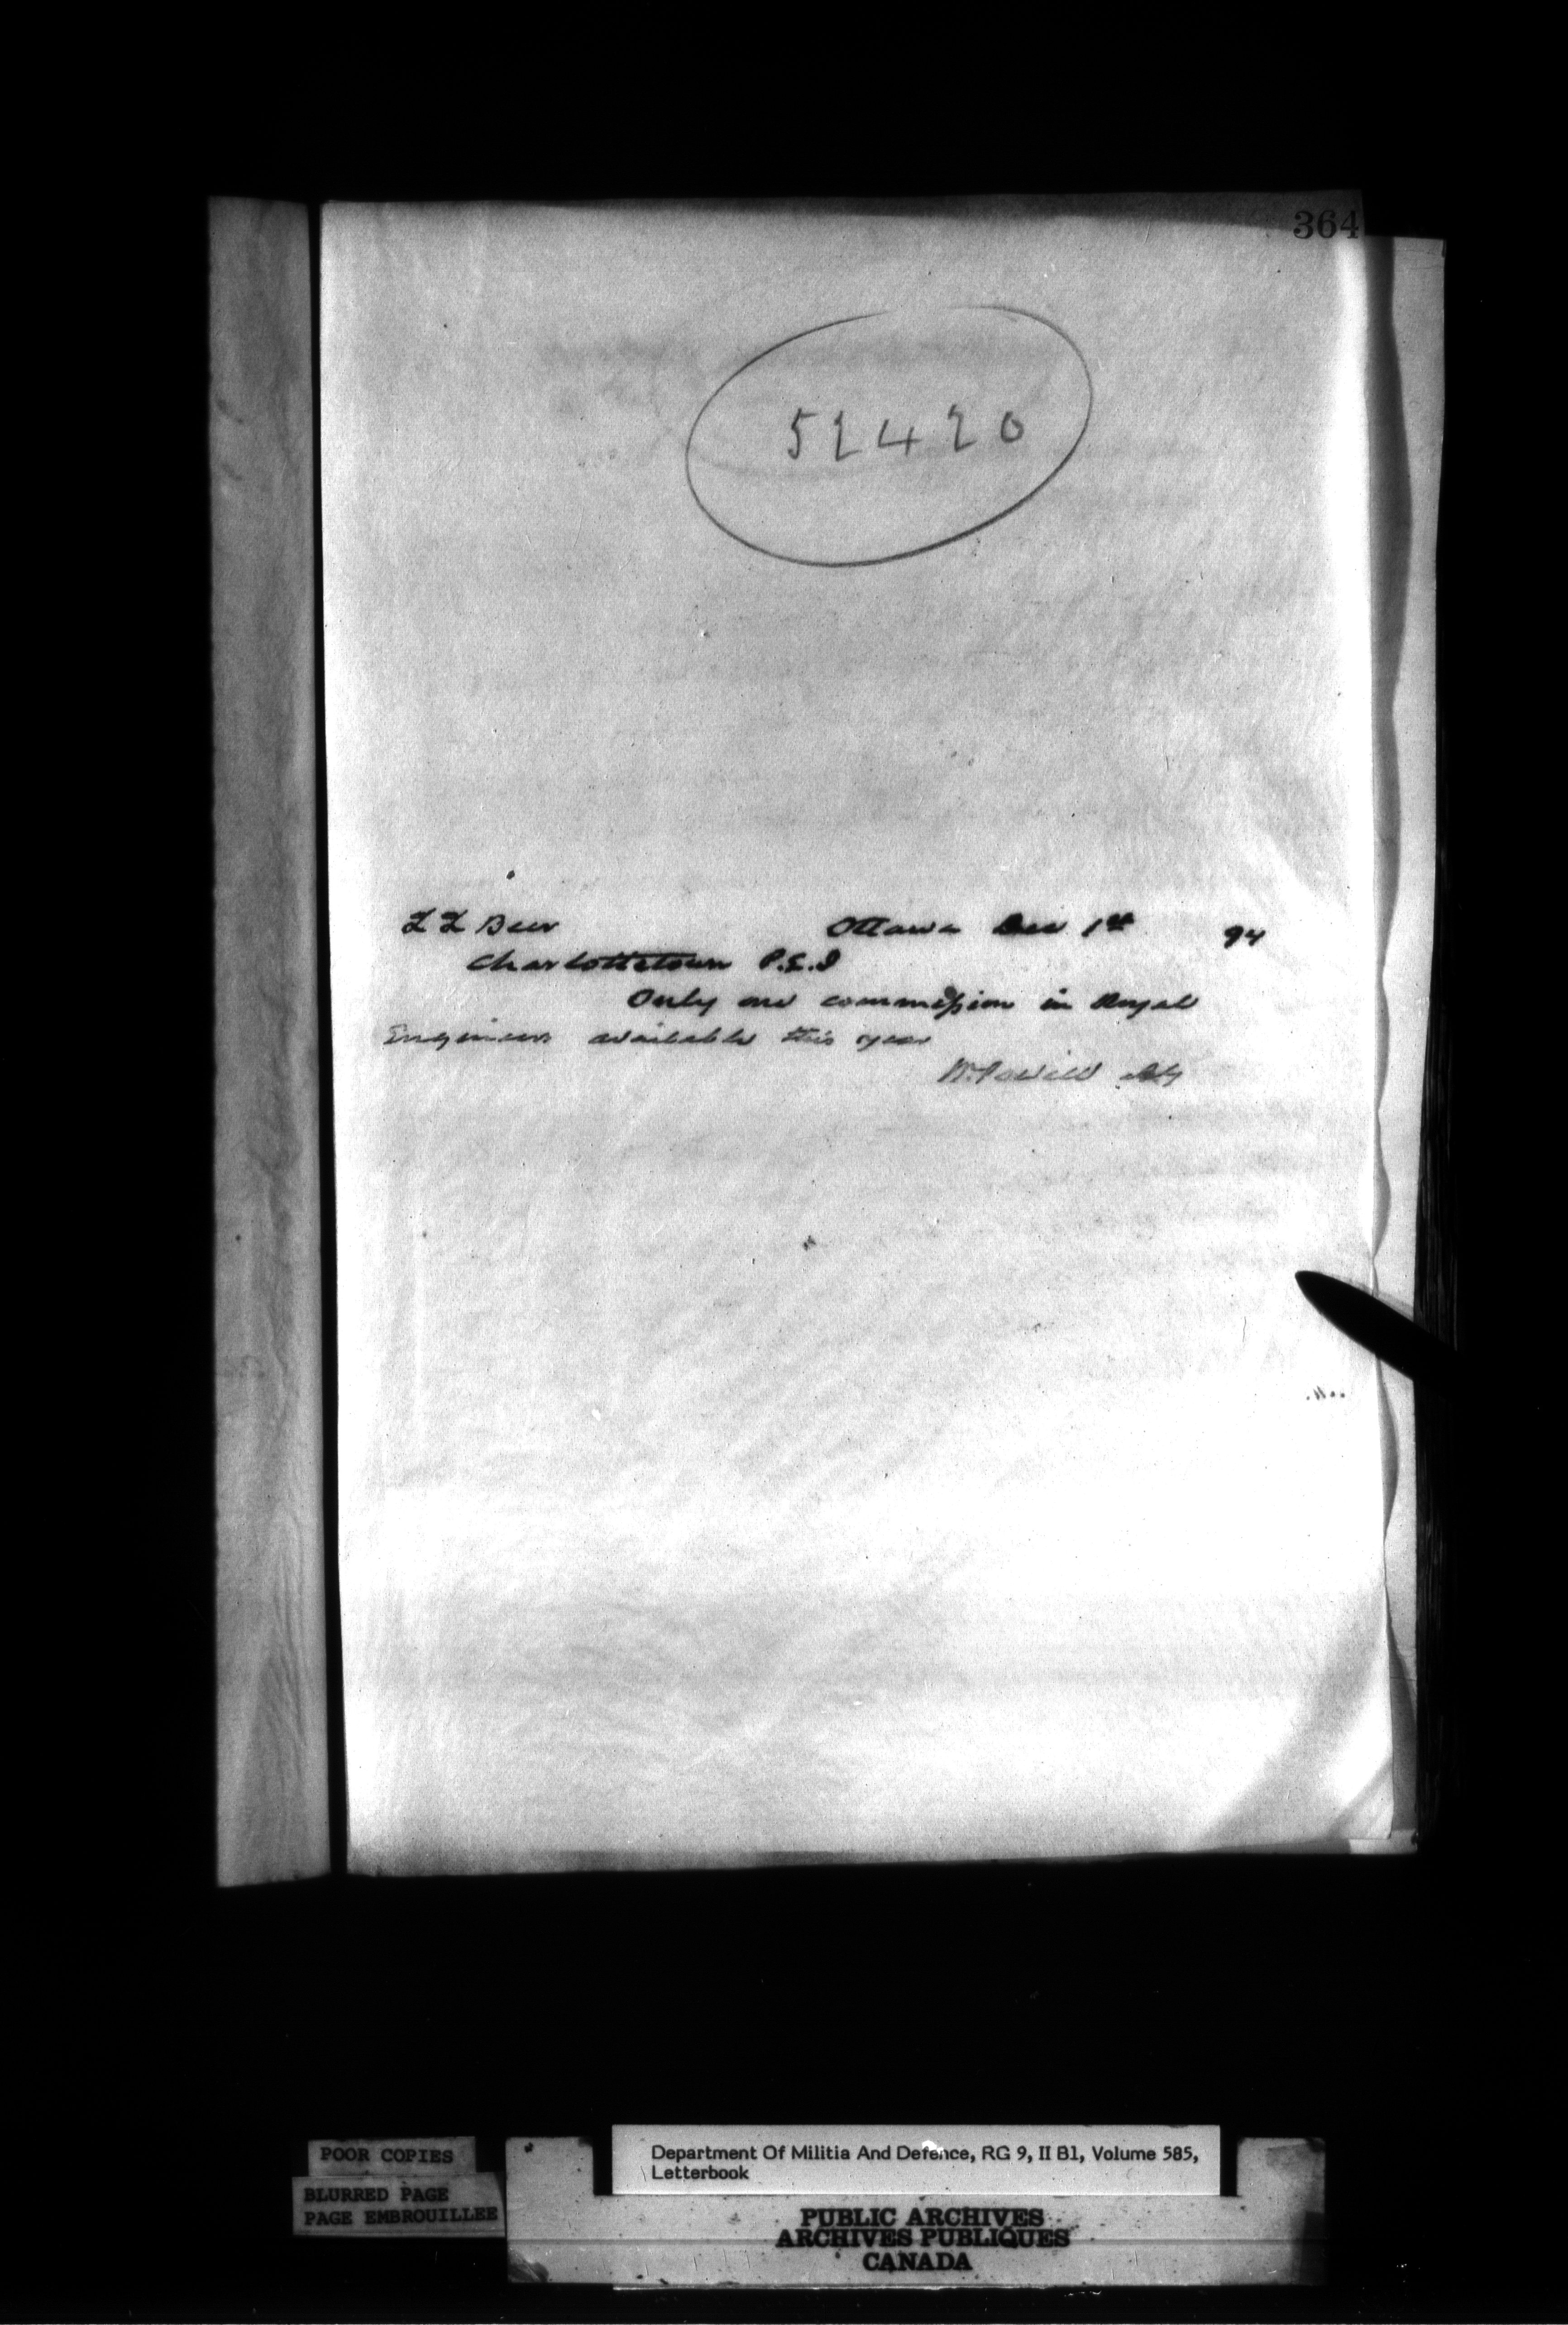 364
52420
L L Beer Ottawa Dec 1st 94
Charlottetown P.E.I
Only one commission in Royal
Engineers available this year
W. Powell AG
POOR COPIES
BLURRED PAGE
PAGE EMBROUILLEE
Department Of Militia And Defence, RG 9, II B1, Volume 585,
Letterbook
PUBLIC ARCHIVES
ARCHIVES PUBLIQUES
CANADA